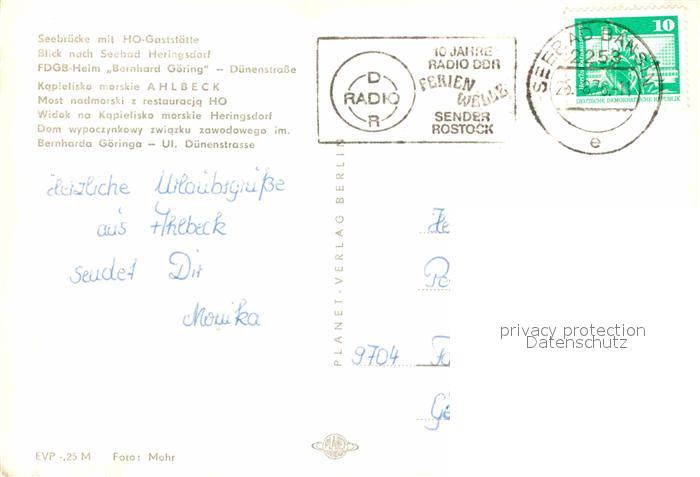 Seebrücke mit HO-Gaststätte
Blick nach Seebad Heringsdorf
FDGB-Heim „Bernhard Göring" – Dünenstraße
Kąpielisko morskie AHLBECK
Most nadmorski z restauracją HO
Widok na Kąpielisko morskie Heringsdorf
Dom wypoczynkowy związku zawodowego im.
Bernharda Göringa – Ul. Dünenstrasse
Herzliche Urlaubsgrüße
aus Ahlbeck
sendet Dir
Monika
EVP -,25 M Foto: Mohr
PLANET-VERLAG BERLIN
PLANET
D
RADIO
R
10 JAHRE
RADIO DDR
FERIEN
WELLE
SENDER
ROSTOCK
SEEBAD BANSIN
2253
e
10
DEUTSCHE DEMOKRATISCHE REPUBLIK
9704
privacy protection
Datenschutz